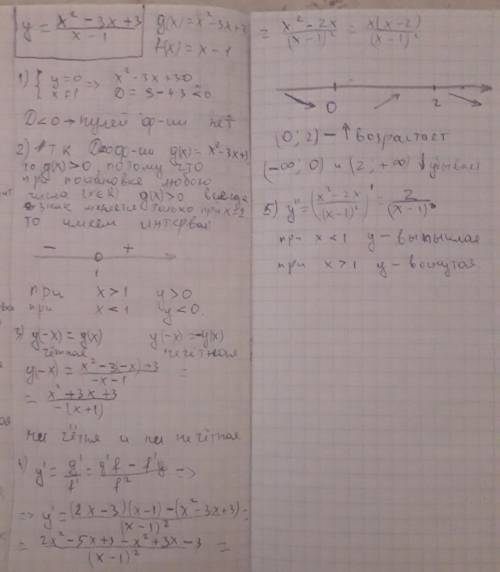 y = (x² - 3x + 3)/(x - 1)
g(x) = x² - 3x + 3
f(x) = x - 1
1) { y = 0 x ≠ 1 => x² - 3x + 3 = 0 D = 9 - 4·3 < 0
D < 0 → нулей ф-ии нет
2) Т.К D < 0 ф-ии g(x) = x² - 3x + 3
то g(x) > 0, потому что
при подстановке любого
числа (x ∈ R) g(x) > 0 всегда
знак меняется только при x = 1
то имеем интервал
- +
1
при x > 1 y > 0
при x < 1 y < 0
3) y(-x) = y(x) y(-x) = -y(x)
чётная нечётная
y(-x) = (x² - 3(-x) + 3)/(-x - 1) =
= (x² + 3x + 3)/(-(x + 1))
ни чётная и ни нечётная
4) y' = g'/f' = (g'f - f'g)/f² =>
=> y' = ((2x - 3)(x - 1) - (x² - 3x + 3))/(x - 1)² =
= (2x² - 5x + 3 - x² + 3x - 3)/(x - 1)² =
= (x² - 2x)/(x - 1)² = x(x - 2)/(x - 1)²
0 2
(0; 2) - ↑ возрастает
(-∞; 0) и (2; +∞) ↓ убывает
5) y'' = ((x² - 2x)/(x - 1)²)' = 2/(x - 1)³
при x < 1 y - выпуклая
при x > 1 y - вогнутая